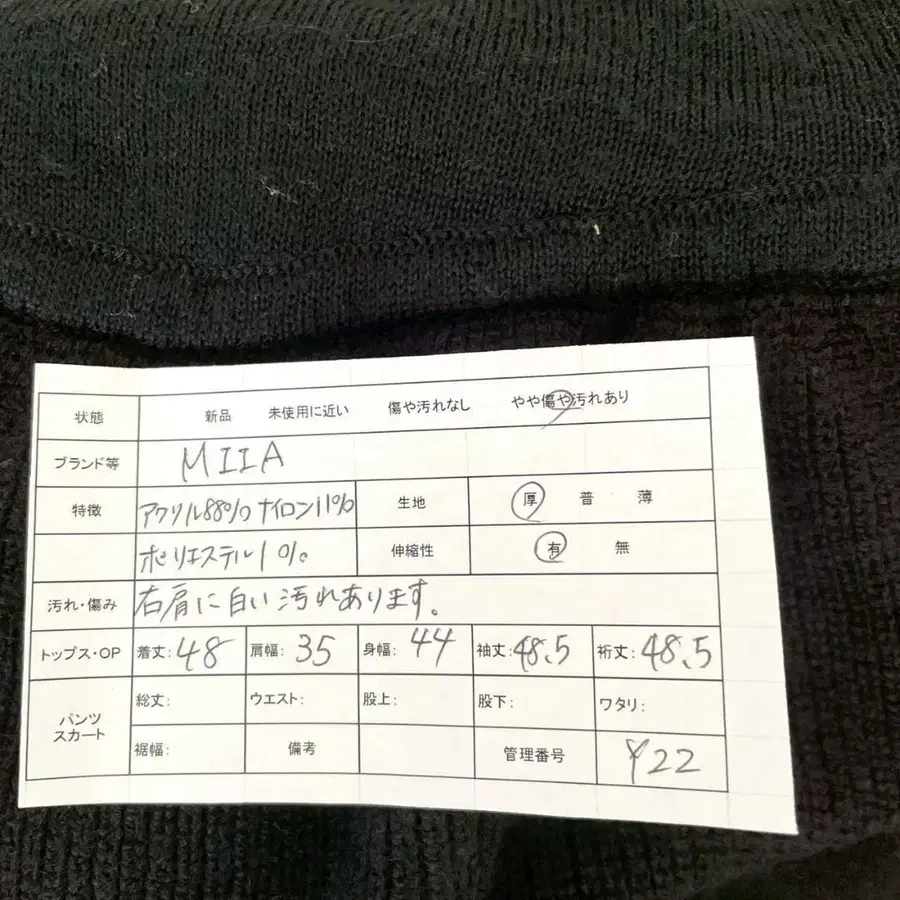 状態 新品 未使用に近い 傷や汚れなし やや傷や汚れあり
ブランド等 MIIA
特徴 アクリル88% ナイロン11% 生地 厚 普 薄
ポリエステル1% 伸縮性 有 無
汚れ・傷み 右肩に白い汚れあります。
トップス・OP 着丈:48 肩幅:35 身幅:44 袖丈:48.5 裄丈:48.5
パンツ スカート 総丈: ウエスト: 股上: 股下: ワタリ:
裾幅: 備考 管理番号 Y22